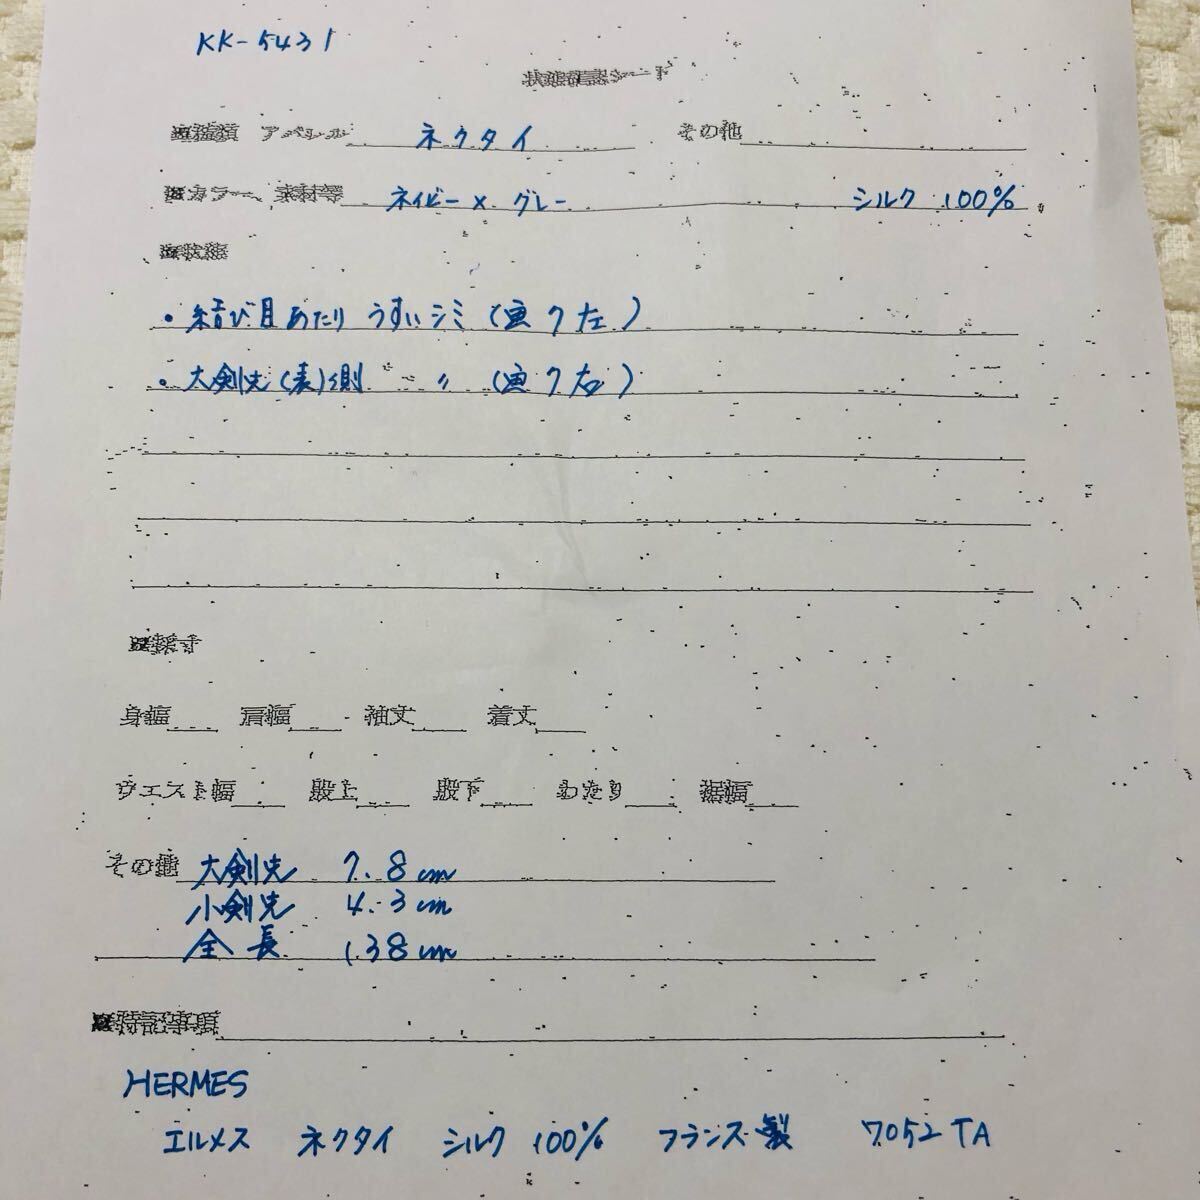 KK-5431
状態確認シート
※種類 アパレル ネクタイ その他
※カラー、素材等 ネイビー × グレー シルク 100%
※状態
・結び目あたり うすいシミ (虫ク左)
・大剣先(表)側 〃 (虫ク右)
※採寸
身幅 肩幅 袖丈 着丈
ウエスト幅 股上 股下 わたり 裾幅
その他 大剣先 7.8cm
小剣先 4.3cm
全長 138cm
※特記事項
HERMES
エルメス ネクタイ シルク 100% フランス製 7052 TA